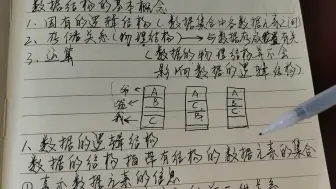 数据结构的基本概念
1. 固有的逻辑结构(数据集合中各数据元素之间)
2. 存储关系(物理结构)→与数据存放位置有关
3. 运算 (数据的物理结构并不会
影响数据的逻辑结构)
A A A
B C B
C B C
1. 数据的逻辑结构
数据的结构指带有结构的数据元素的集合
① 表示数据元素的信息